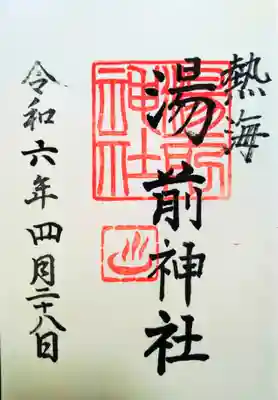 熱海
湯前神社
湯前神社
令和六年四月二十八日